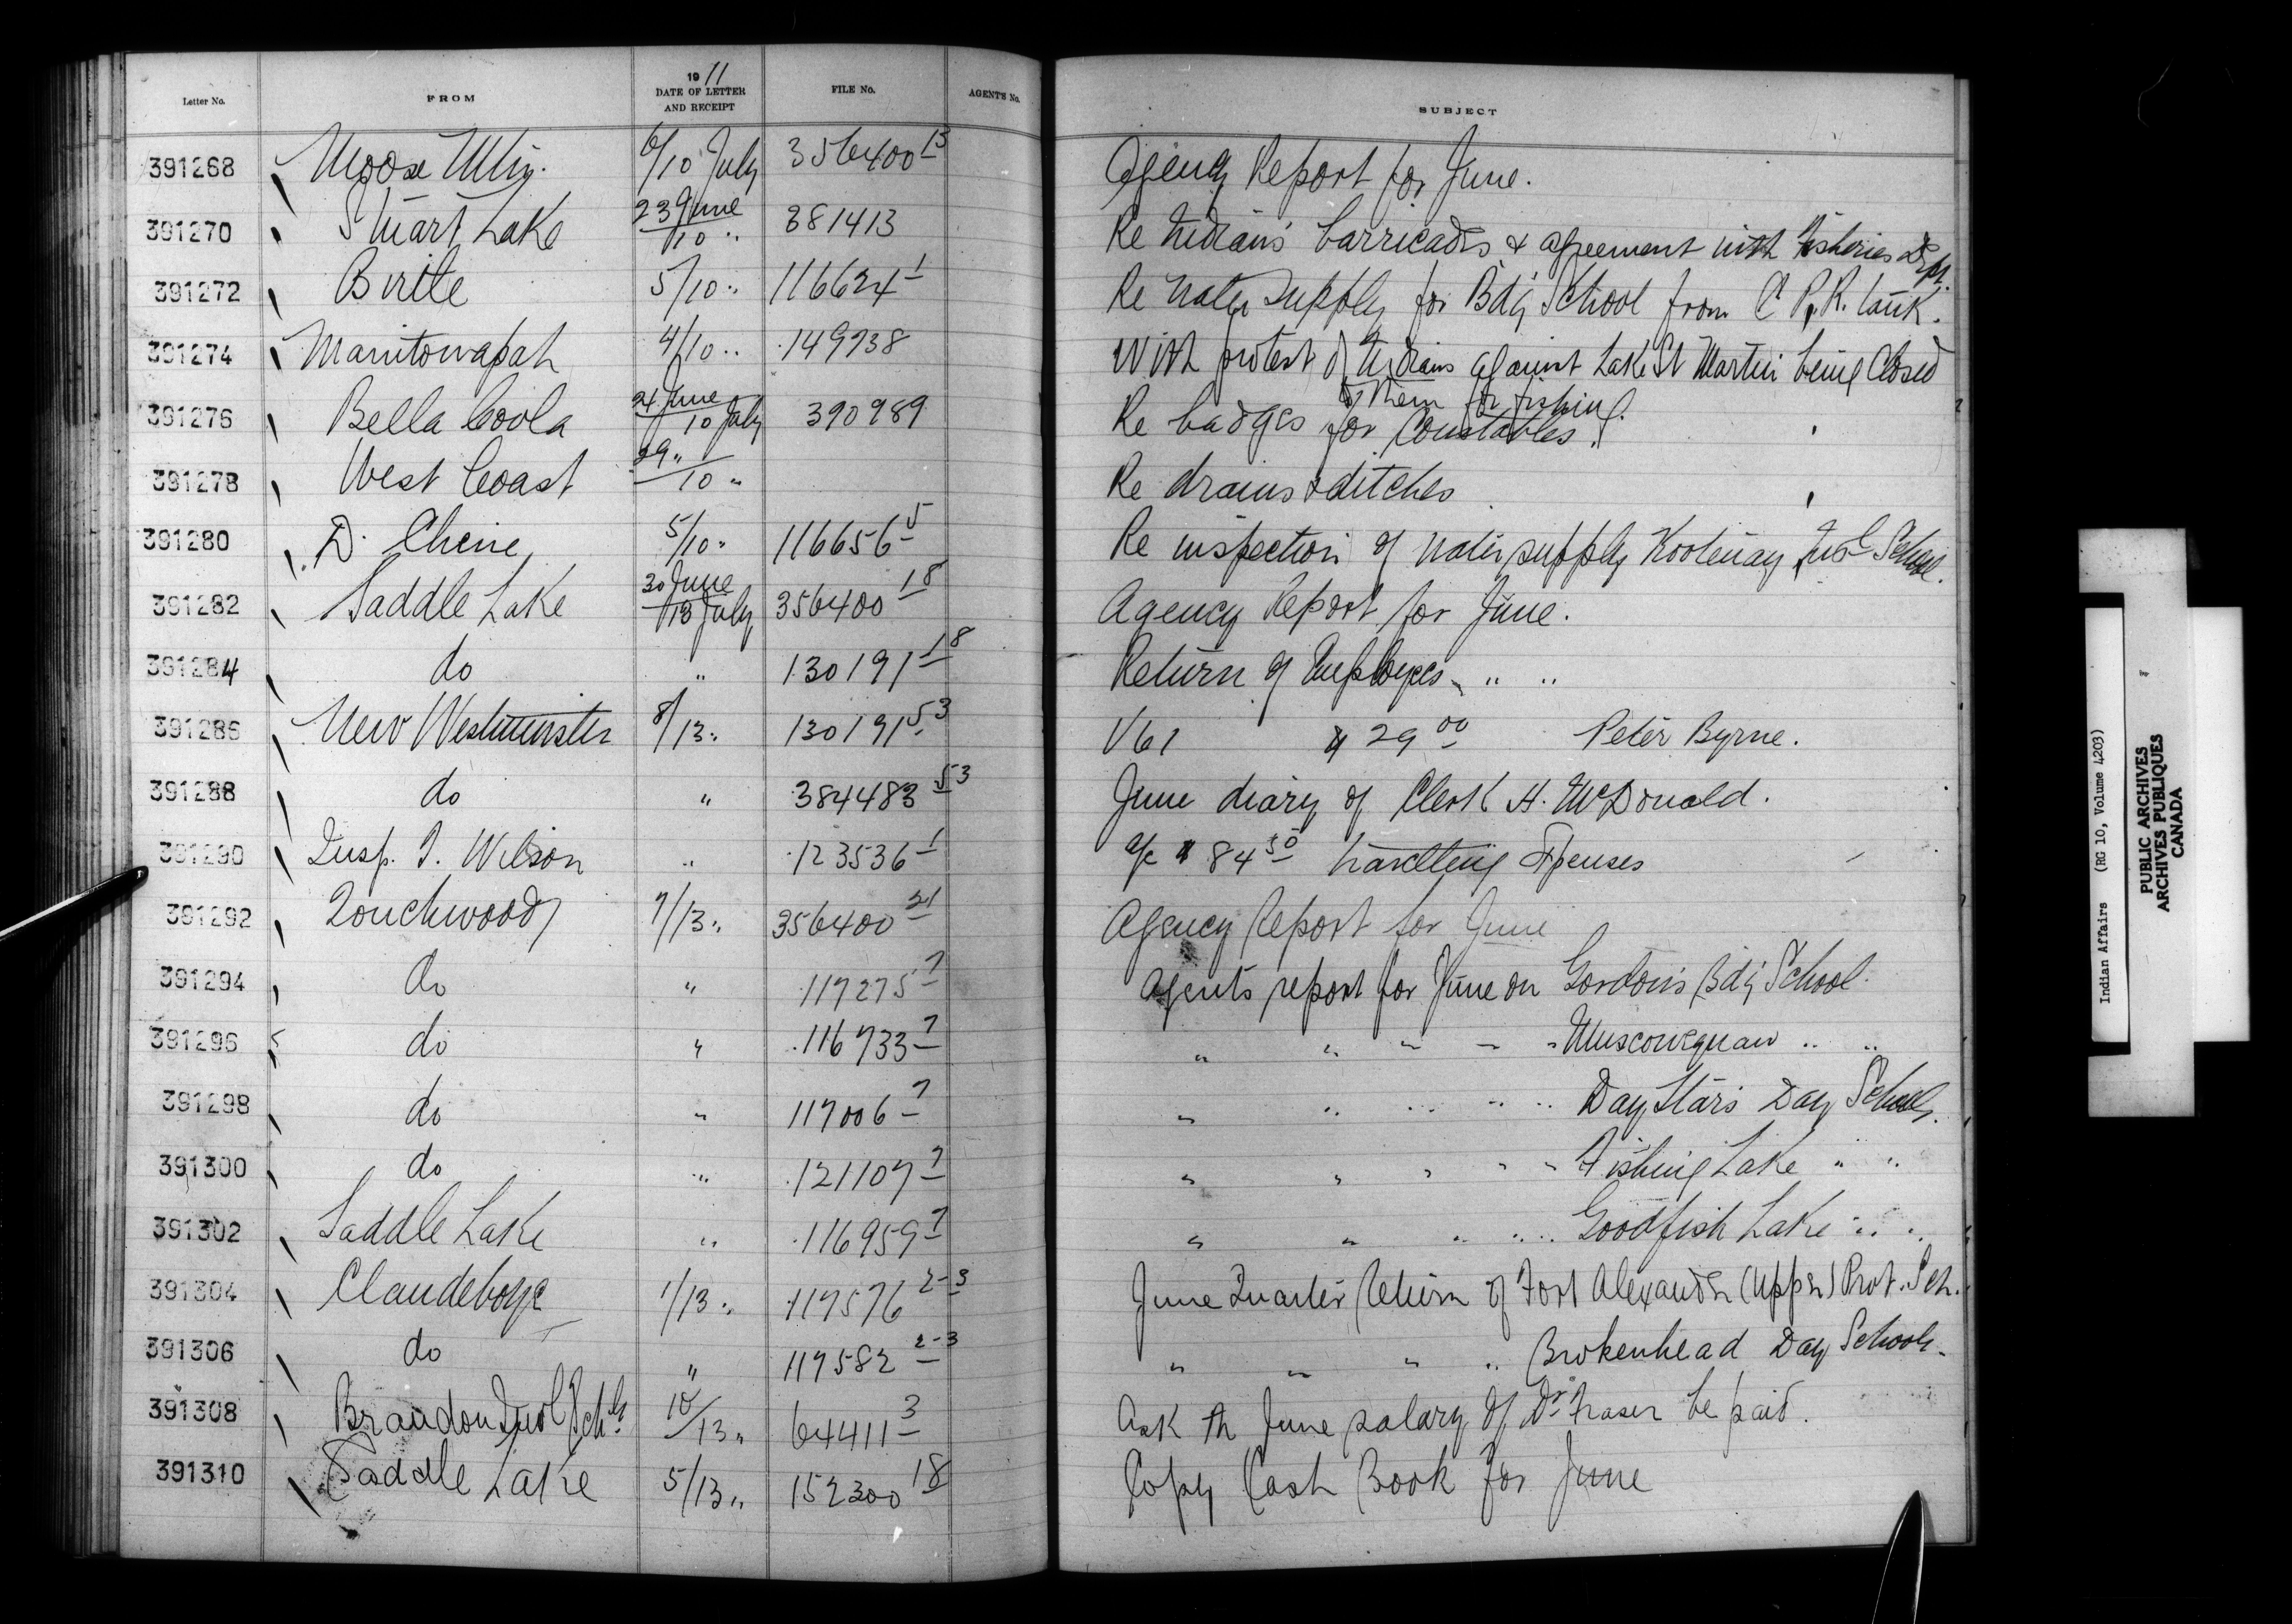 Letter No. FROM 1911 DATE OF LETTER AND RECEIPT FILE No. AGENT'S No. SUBJECT
391268 Moose Mtn. 6/10 July 356400 13 Agency Report for June.
391270 Stuart Lake 23 June/10 " 381413 Re Indians barricades & agreement with Fisheries Dept.
391272 Birtle 5/10 " 116624 1 Re water supply for Bdg School from C.P.R. tank.
391274 Manitowapah 4/10 " 149738 With protest of Indians against Lake St Martin being closed
to them for fishing.
391276 Bella Coola 24 June/10 July 390989 Re badges for Constables.
391278 West Coast 29 "/10 " Re drains & ditches
391280 D. Chene 5/10 " 116656 5 Re inspection of water supply Kootenay Indl School.
391282 Saddle Lake 30 June/13 July 356400 18 Agency Report for June.
391284 do " 130191 18 Return of Employees " "
391286 New Westminster 8/13 " 130191 53 V61 $29 00 Peter Byrne.
391288 do " 384483 53 June diary of Clerk H. McDonald.
391290 Insp. J. Wilson " 123536 1 a/c $84 50 travelling Expenses
391292 Touchwood 7/13 " 356400 21 Agency Report for June
391294 do " 117275 7 Agents report for June on Gordon's Bdg School.
391296 do " 116733 7 " " " " " Muscowequan " "
391298 do " 117006 7 " " " " " Day Stars Day School.
391300 do " 121107 7 " " " " " Fishing Lake " "
391302 Saddle Lake " 116959 7 " " " " " Goodfish Lake " "
391304 Clandeboye 1/13 " 117576 2-3 June Quarter Return of Fort Alexander (Upper) Prot. Sch.
391306 do " 117582 2-3 " " " " Brokenhead Day School.
391308 Brandon Indl Schl. 10/13 " 64411 3 Ask th June salary of Dr Fraser be paid.
391310 Saddle Lake 5/13 " 152300 18 Copy Cash Book for June
Indian Affairs (RG 10, Volume 4203)
PUBLIC ARCHIVES
ARCHIVES PUBLIQUES
CANADA